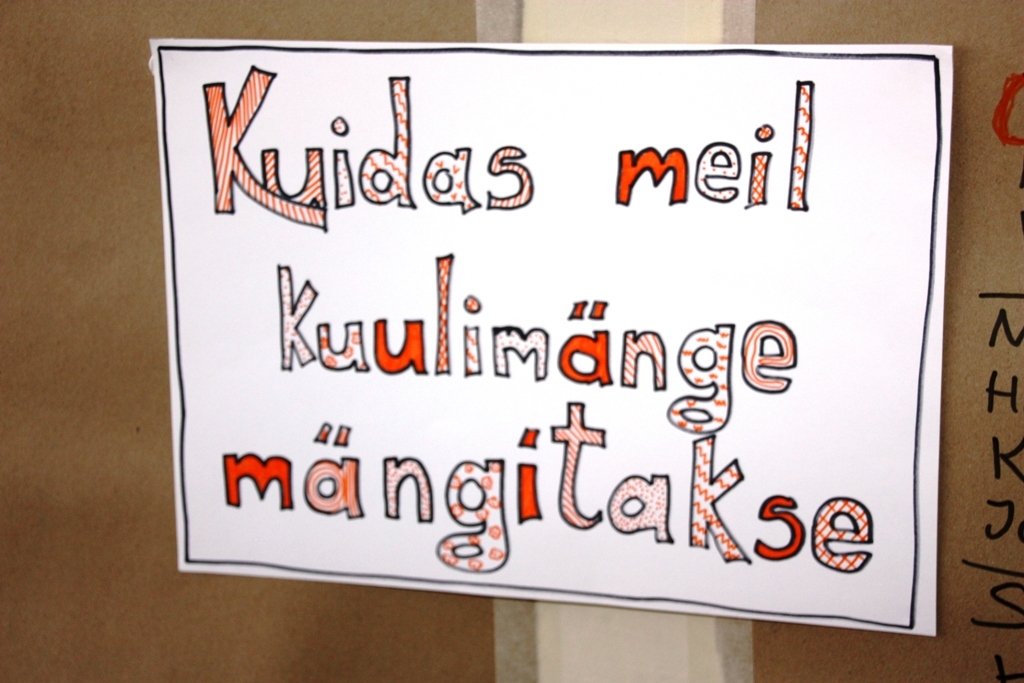 Kuidas meil
kuulimänge
mängitakse